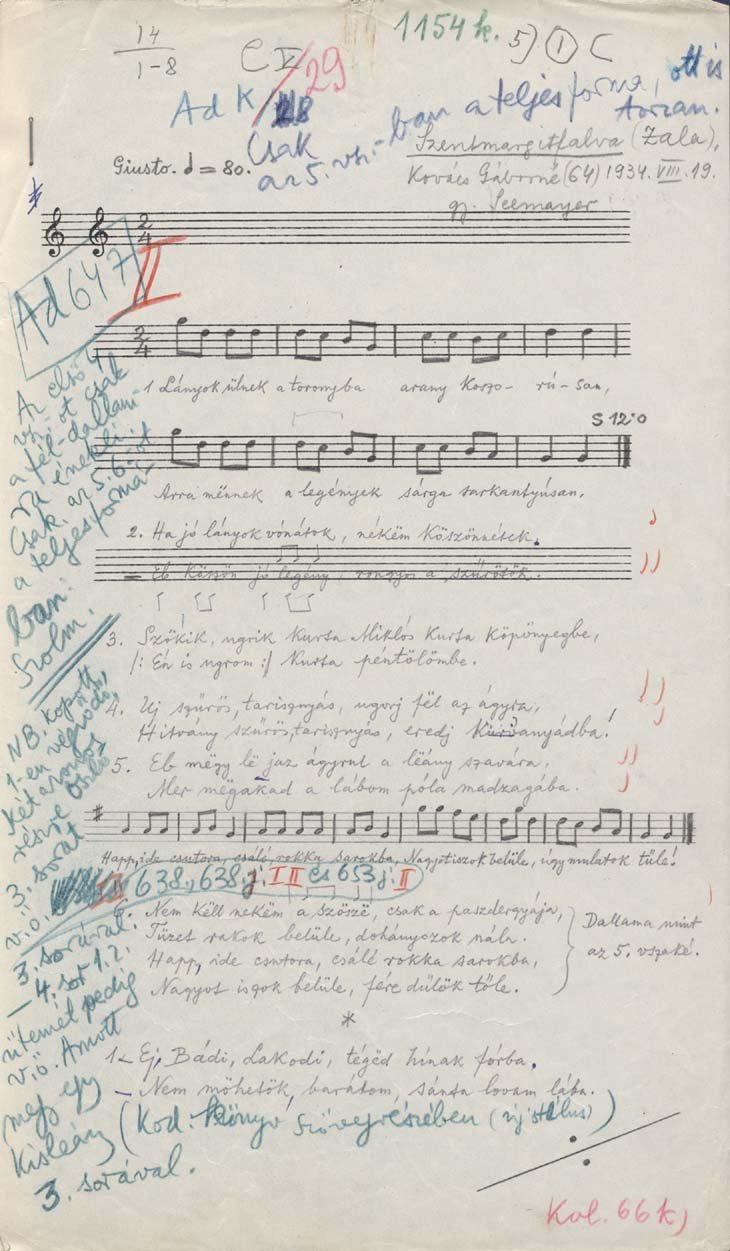 14
1-8
C V
1154 k.
5) 1 C
29
Ad K/
Csak az 5. vsz.-ban a teljes forma, ott is torzan.
Szentmargitfalva (Zala),
Kovács Gáborné (64) 1934. VIII. 19.
gy. Seemayer
Giusto. = 80.
2
4
Ad 647 II
2
4
1 Lányok ülnek a toronyba arany koszo- rú- san,
S 12:0
Arra mënnek a legények sárga sarkantyúsan.
2. Ha jó lányok vónátok, nékëm köszönnétek.
Eb köszön jó legény, rongyos a szűrösök.
3. Szökik, ugrik Kurta Miklós kurta köpönyegbe,
/: Én is ugrom :/ kurta péntölömbe.
4. Uj szűrös, tarisznyás, ugorj fël az ágyra,
Hitvány szűrös, tarisznyás, eredj anyádba!
5. Eb mëgy lë jaz ágyrul a lëány szavára,
Mer mëgakad a lábom póla madzagába.
Happ, ide csutora, csáló, rokka sarokba, Nagyot iszok belüle, úgy mulatok tűle!
638., 638 j. I II és 653 j. II
6. Nem këll nekëm a szösze, csak a pazdergyája,
Tüzet rakok belüle, dohányozok nála.
Happ, ide csutora, csálé rokka sarokba,
Nagyot iszok belüle, fére dülök tőle.
Dallama mint
az 5. vszaké.
*
1 Ej, Bádi, Lakodi, tégëd hínak fórba.
Nem möhetök, barátom, sánta lovam lába.
Az első 4
vsz.-ot csak
a fél-dallam-
ra énekli.
Csak az 5. 6.-ot
a teljes formá-
ban.
Szolm.
NB. kopott
1-en végződő,
két azonos
részre oszló
3. sorát
v.ö.
3. sorával.
– 4. sor 1. 2.
ütemét pedig
v.ö. Amott
megy egy
kisleány
3. sorával.
(Kod. könyv szövegrészében (új stílus))
Kal. 66 k,